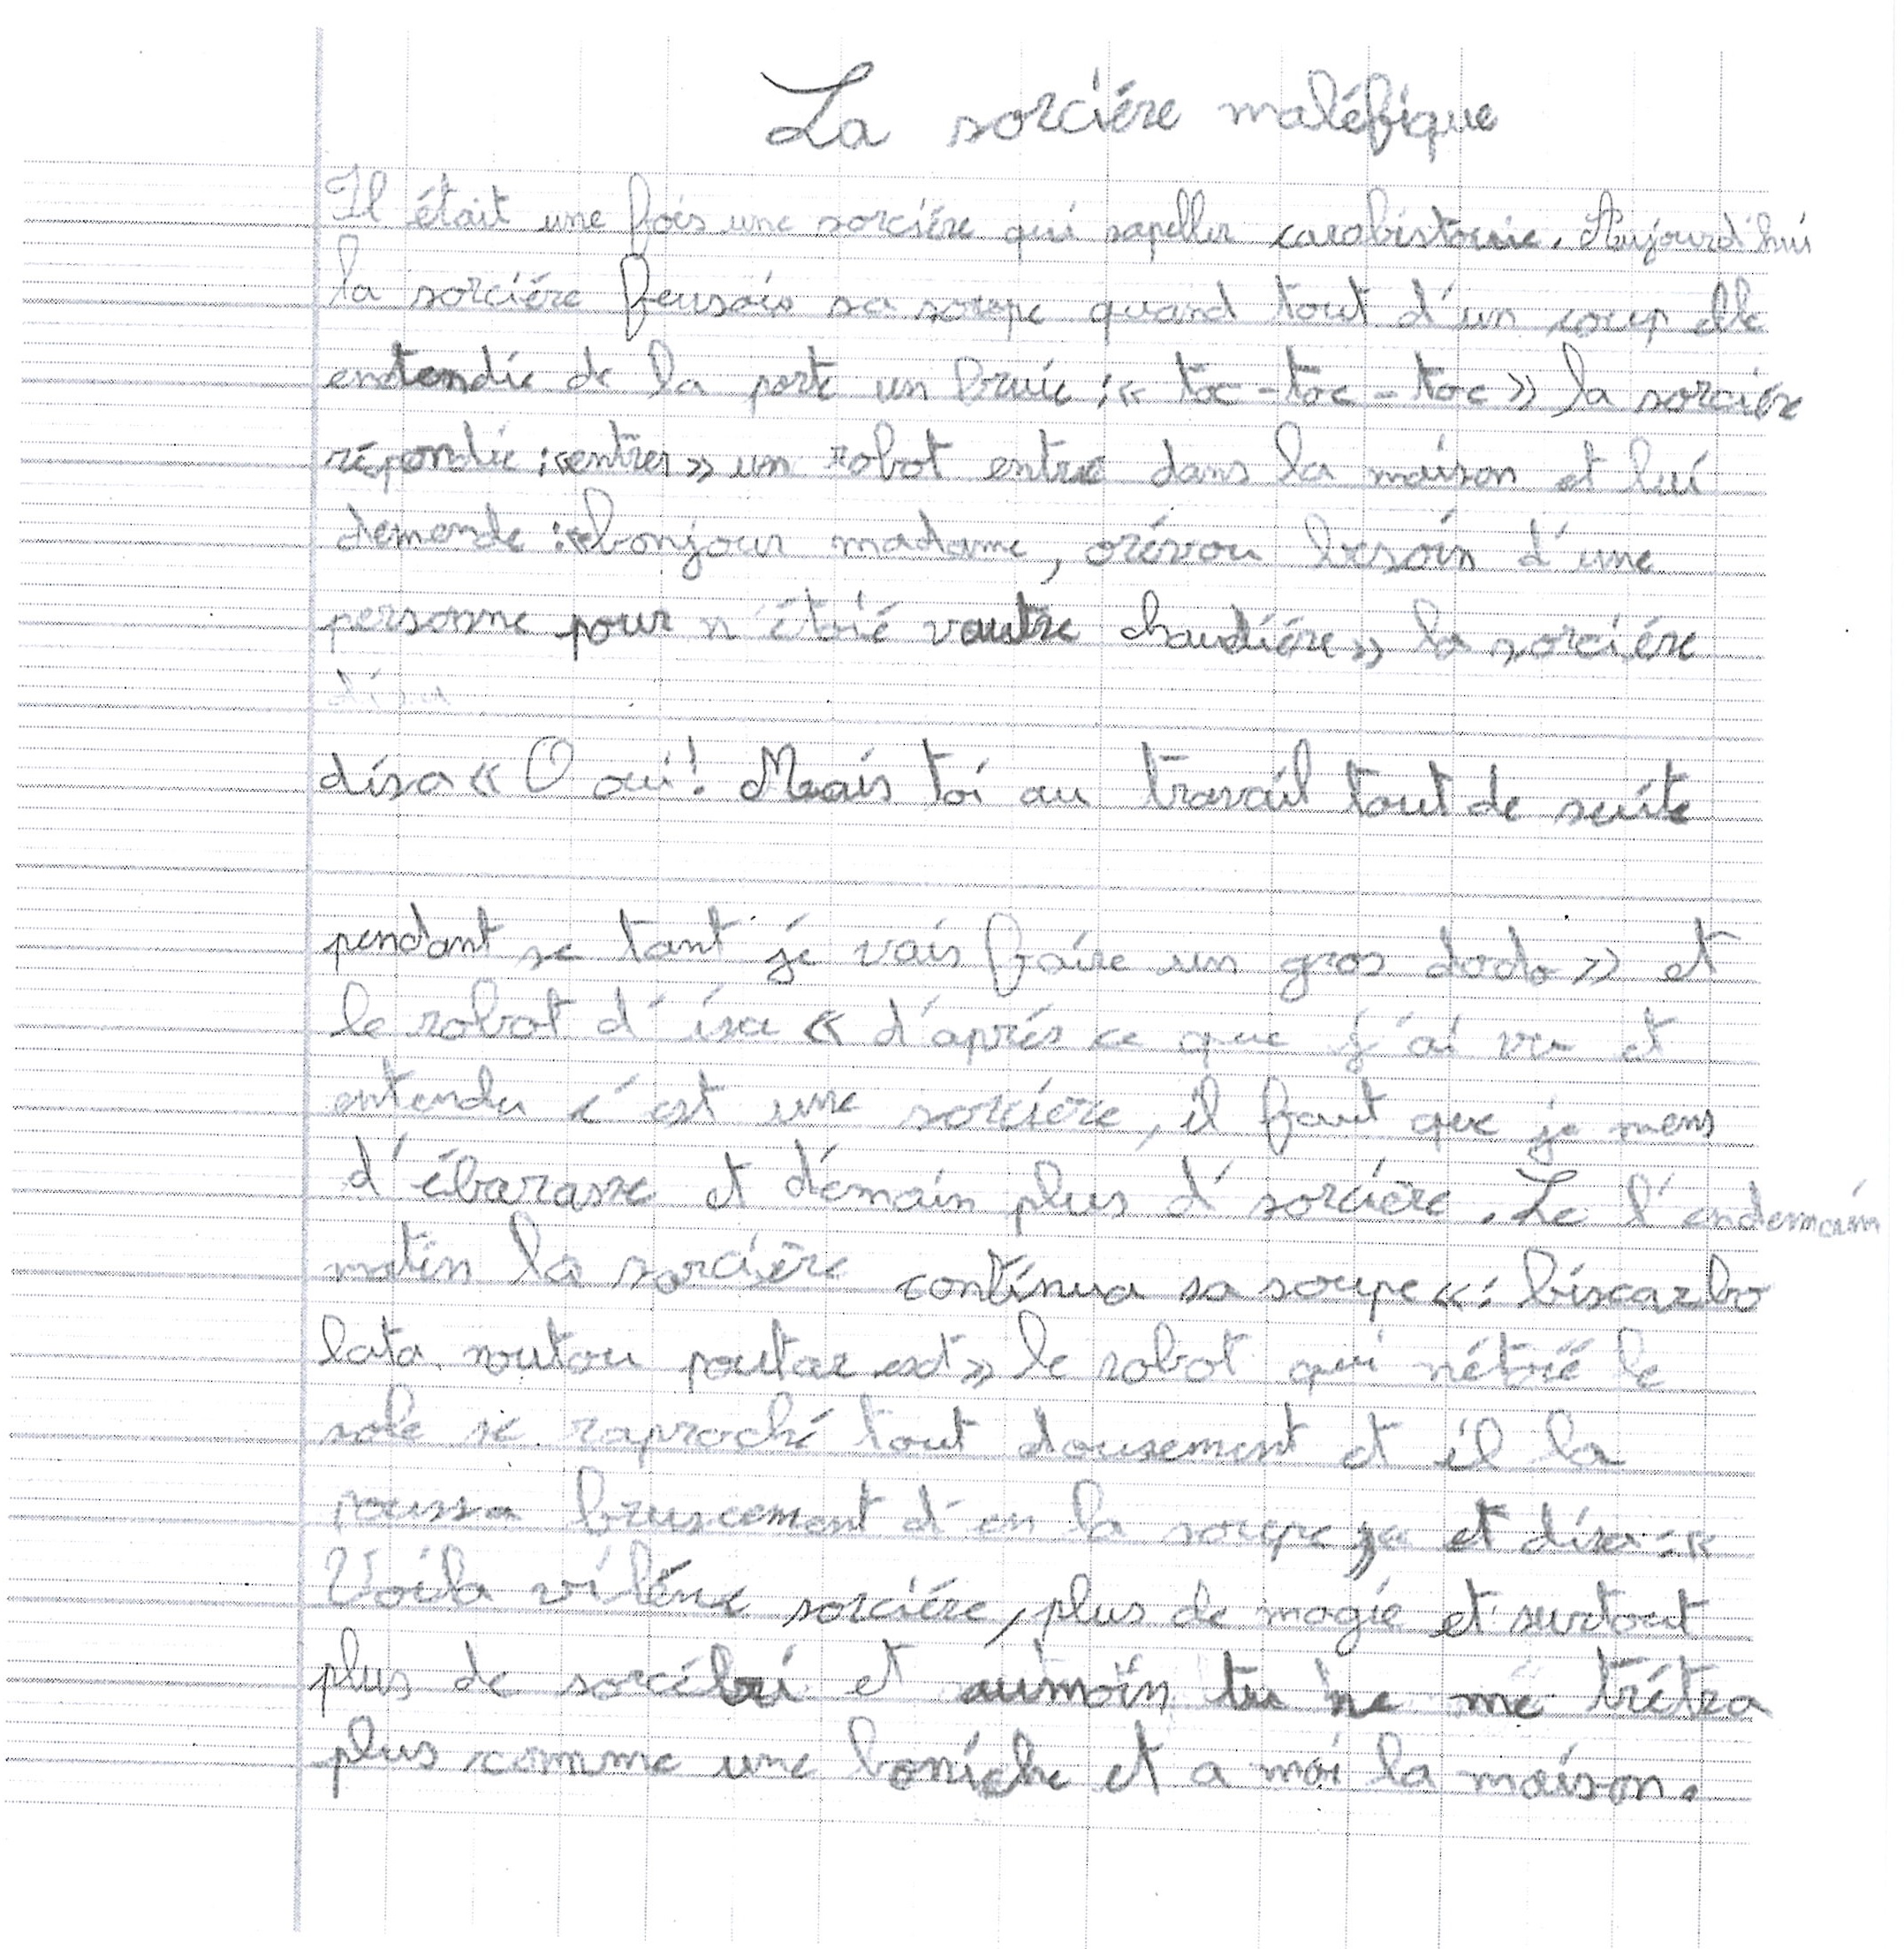 La sorciére maléfique
Il était une fois une sorciére qui sapeller carabistouie. Aujourd'hui
la sorciére feusais sa soupe quand tout d'un coup elle
entendie de la porte un bruie : « toc - toc - toc » la sorciére
répondie : « entrer » un robot entre dans la maison et lui
demende : « bonjour madame, orévou besoin d'une
personne pour n'étoié vautre chaudiére » la sorciére
disa « O oui ! Mais toi au travail tout de suite
pendant se tant je vais faire un gros dodo » et
le robot d'isa « d'aprés ce que j'ai vu et
entendu c'est une sorciére, il faut que je mens
d'ébarasse et démain plus d' sorciére. Le l'endemain
matin la sorciére continua sa soupe « : biscarbo
lata noutou poutar ext » le robot qui nétoié le
sole se raproché tout dousement et il la
poussa bruscement d'en la soupe et disa : «
Voila viléne sorciére, plus de magie et surtout
plus de sorcéleri et aumoin tu ne me trétra
plus comme une boniche et a moi la maison.